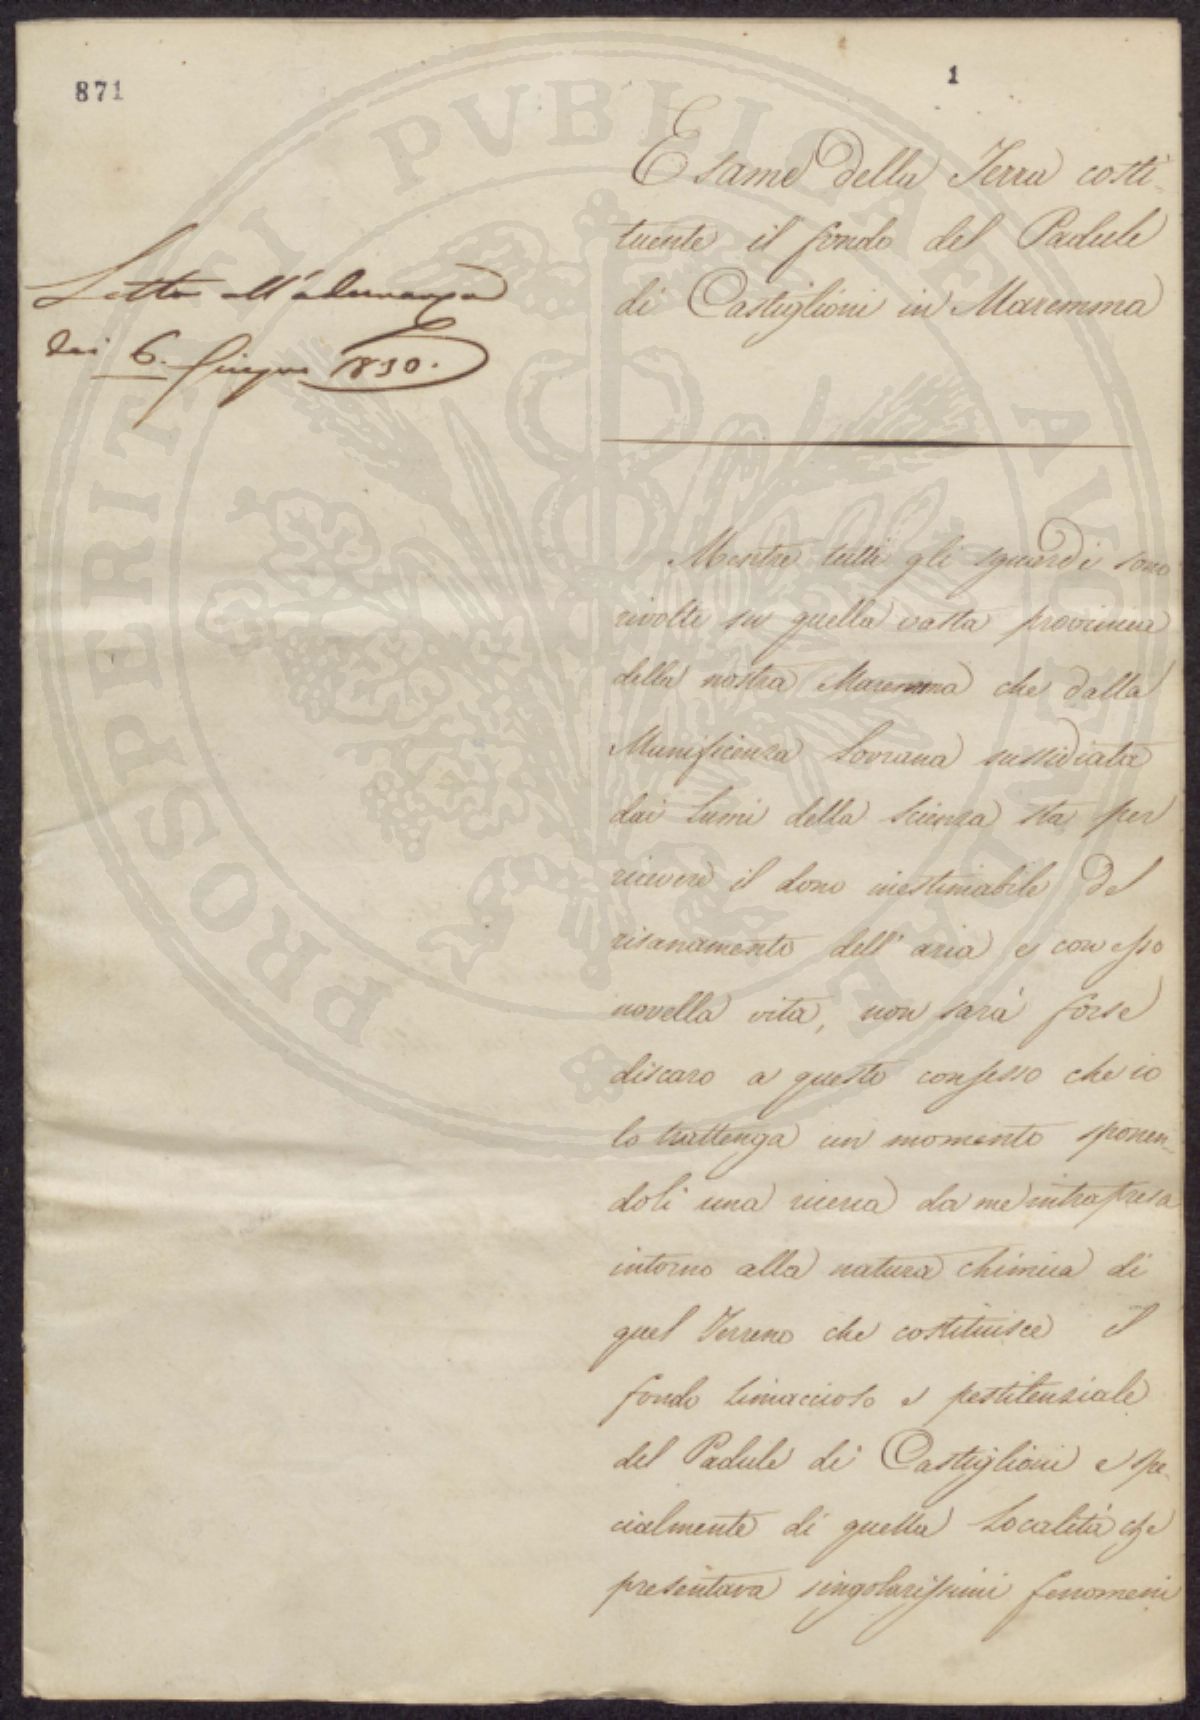 871
1
Esame della Terra costi-
tuente il fondo del Padule
di Castiglioni in Maremma
Letta all'adunanza
dei 6. Giugno 1830.
Mentre tutti gli sguardi sono
rivolti su quella vasta provincia
della nostra Maremma che dalla
Munificenza Sovrana sussidiata
dai lumi della scienza sta per
ricevere il dono inestimabile del
risanamento dell'aria e con esso
novella vita, non sarà forse
discaro a questo consesso che io
lo trattenga un momento sponen-
doli una ricerca da me intrapresa
intorno alla natura chimica di
quel Terreno che costituisce il
fondo limaccioso e pestilenziale
del Padule di Castiglioni e spe-
cialmente di quella Località che
presentava singolarissimi fenomeni
PROSPERITATI PVBLICAE AVGENDAE